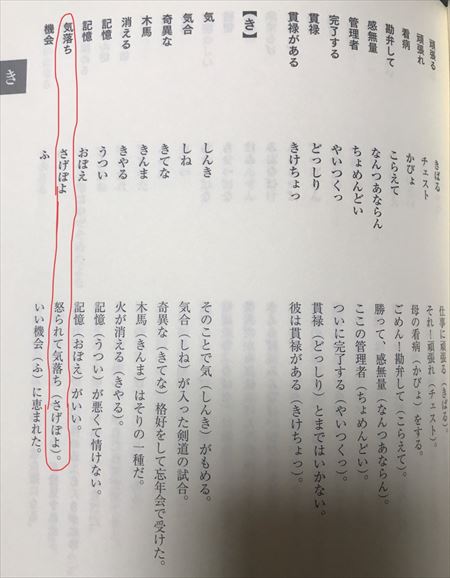 頑張る きばる 仕事に頑張る(きばる)。
頑張れ チェスト それ!頑張れ(チェスト)。
看病 かびょ 母の看病(かびょ)をする。
勘弁して こらえて ごめん!勘弁して(こらえて)。
感無量 なんつあならん 勝って、感無量(なんつあならん)。
管理者 ちょめんどい ここの管理者(ちょめんどい)。
完了する やいつくっ ついに完了する(やいつくっ)。
貫禄 どっしり 貫禄(どっしり)とまではいかない。
貫禄がある きけちょっ 彼は貫禄がある(きけちょっ)。
【き】
気 しんき そのことで気(しんき)がもめる。
気合 しね 気合(しね)が入った剣道の試合。
奇異な きてな 奇異な(きてな)格好をして忘年会で受けた。
木馬 きんま 木馬(きんま)はそりの一種だ。
消える きやる 火が消える(きやる)。
記憶 うつい 記憶(うつい)が悪くて情けない。
記憶 おぼえ 記憶(おぼえ)がいい。
気落ち さげぽよ 怒られて気落ち(さげぽよ)。
機会 ふ いい機会(ふ)に恵まれた。
き